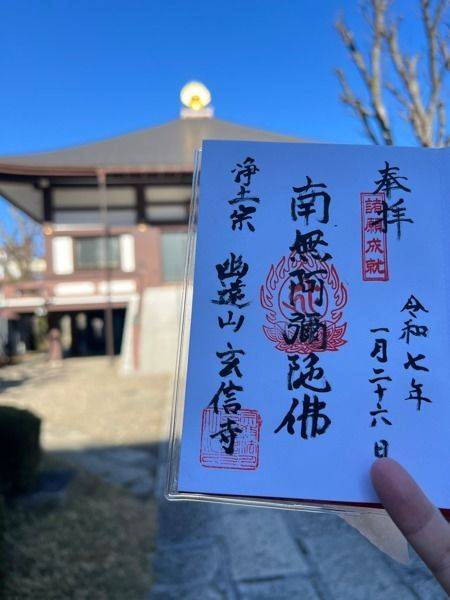 奉拝
諸願成就
令和七年
一月二十六日
南無阿彌陀佛
浄土宗 幽遠山 玄信寺